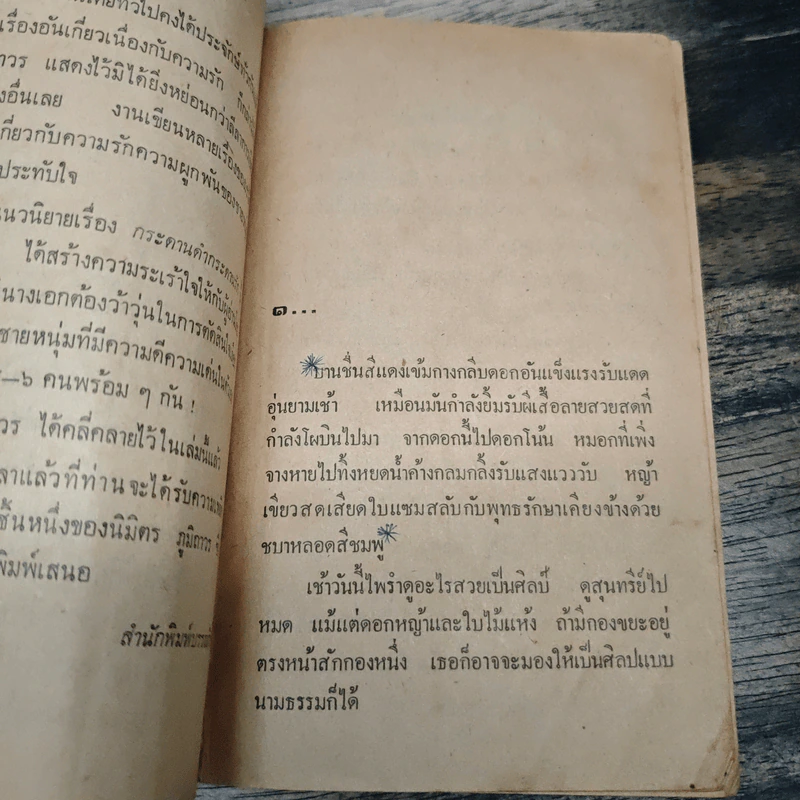 เรื่องอันเกี่ยวเนื่องกับความรัก
แสดงไว้มิได้ยิ่งหย่อนกว่า
งานเขียนหลายเรื่อง
เกี่ยวกับความรักความผูกพันของ
ประทับใจ
แนวนิยายเรื่อง กระดานดำ
ได้สร้างความระเร้าใจให้กับ
นางเอกต้องว้าวุ่นในการตัดสิน
ชายหนุ่มที่มีความดีความเด่นใน
–๖ คนพร้อม ๆ กัน !
ได้คลี่คลายไว้ในเล่มนี้แล้ว
แล้วที่ท่านจะได้รับความ
ชิ้นหนึ่งของนิมิตร ภูมิถาวร
พิมพ์เสนอ
สำนักพิมพ์
๑...
บานชื่นสีแดงเข้มกางกลีบดอกอันแข็งแรงรับแดด
อุ่นยามเช้า เหมือนมันกำลังยิ้มรับผีเสื้อลายสวยสดที่
กำลังโผบินไปมา จากดอกนี้ไปดอกโน้น หมอกที่เพิ่ง
จางหายไปทิ้งหยดน้ำค้างกลมกลิ้งรับแสงแวววับ หญ้า
เขียวสดเสียดใบแซมสลับกับพุทธรักษาเคียงข้างด้วย
ชบาหลอดสีชมพู
เช้าวันนี้ไพรำดูอะไรสวยเป็นศิลป์ ดูสุนทรีย์ไป
หมด แม้แต่ดอกหญ้าและใบไม้แห้ง ถ้ามีกองขยะอยู่
ตรงหน้าสักกองหนึ่ง เธอก็อาจจะมองให้เป็นศิลปแบบ
นามธรรมก็ได้